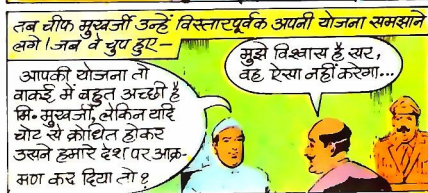 तब चीफ मुखर्जी उन्हें विस्तारपूर्वक अपनी योजना समझाने
लगे! जब वे चुप हुए-
आपकी योजना तो
वाकई में बहुत अच्छी है
मि. मुखर्जी, लेकिन यदि
चोट से क्रोधित होकर
उसने हमारे देश पर आक्र-
मण कर दिया तो?
मुझे विश्वास है सर,
वह ऐसा नहीं करेगा...